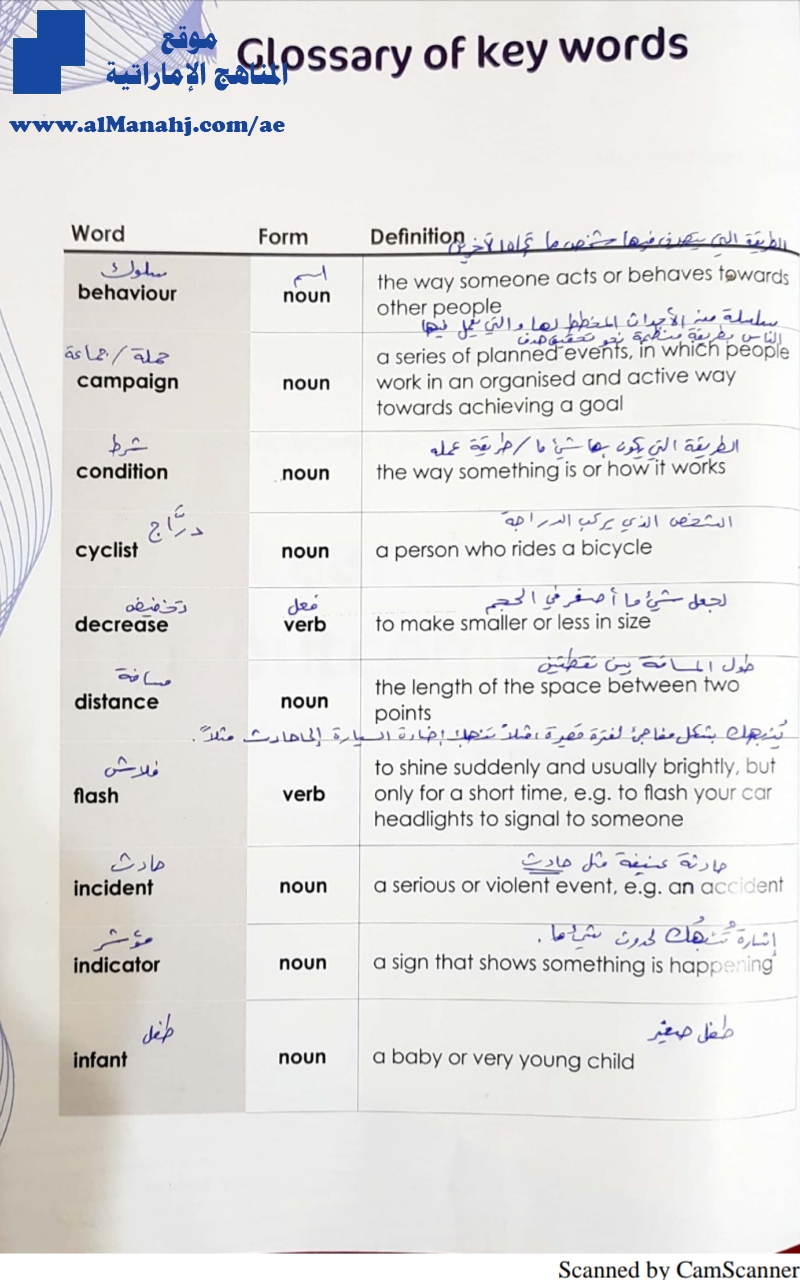 موقع
المناهج الإماراتية
www.alManahj.com/ae
Glossary of key words
Word Form Definition
الطريقة التي يتصرف فيها شخص ما تجاه الآخرين
سلوك اسم
behaviour noun the way someone acts or behaves towards
other people
سلسلة من الأحداث المخطط لها والتي يعمل فيها
الناس بطريقة منظمة نحو تحقيق هدف
حملة / جماعة
campaign noun a series of planned events, in which people
work in an organised and active way
towards achieving a goal
شرط الطريقة التي يكون بها شيئ ما / طريقة عمله
condition noun the way something is or how it works
درَّاج الشخص الذي يركب الدراجة
cyclist noun a person who rides a bicycle
تخفيض فعل لجعل شيئ ما أصغر في الحجم
decrease verb to make smaller or less in size
مسافة طول المسافة بين نقطتين
distance noun the length of the space between two
points
بشكل مفاجئ لفترة قصيرة إضاءة السيارة حادث مثلاً.
فلاش
flash verb to shine suddenly and usually brightly, but
only for a short time, e.g. to flash your car
headlights to signal to someone
حادث حادثة عنيفة مثل حادث
incident noun a serious or violent event, e.g. an accident
مؤشر إشارة لحدوث شيئ ما.
indicator noun a sign that shows something is happening
طفل طفل صغير
infant noun a baby or very young child
Scanned by CamScanner